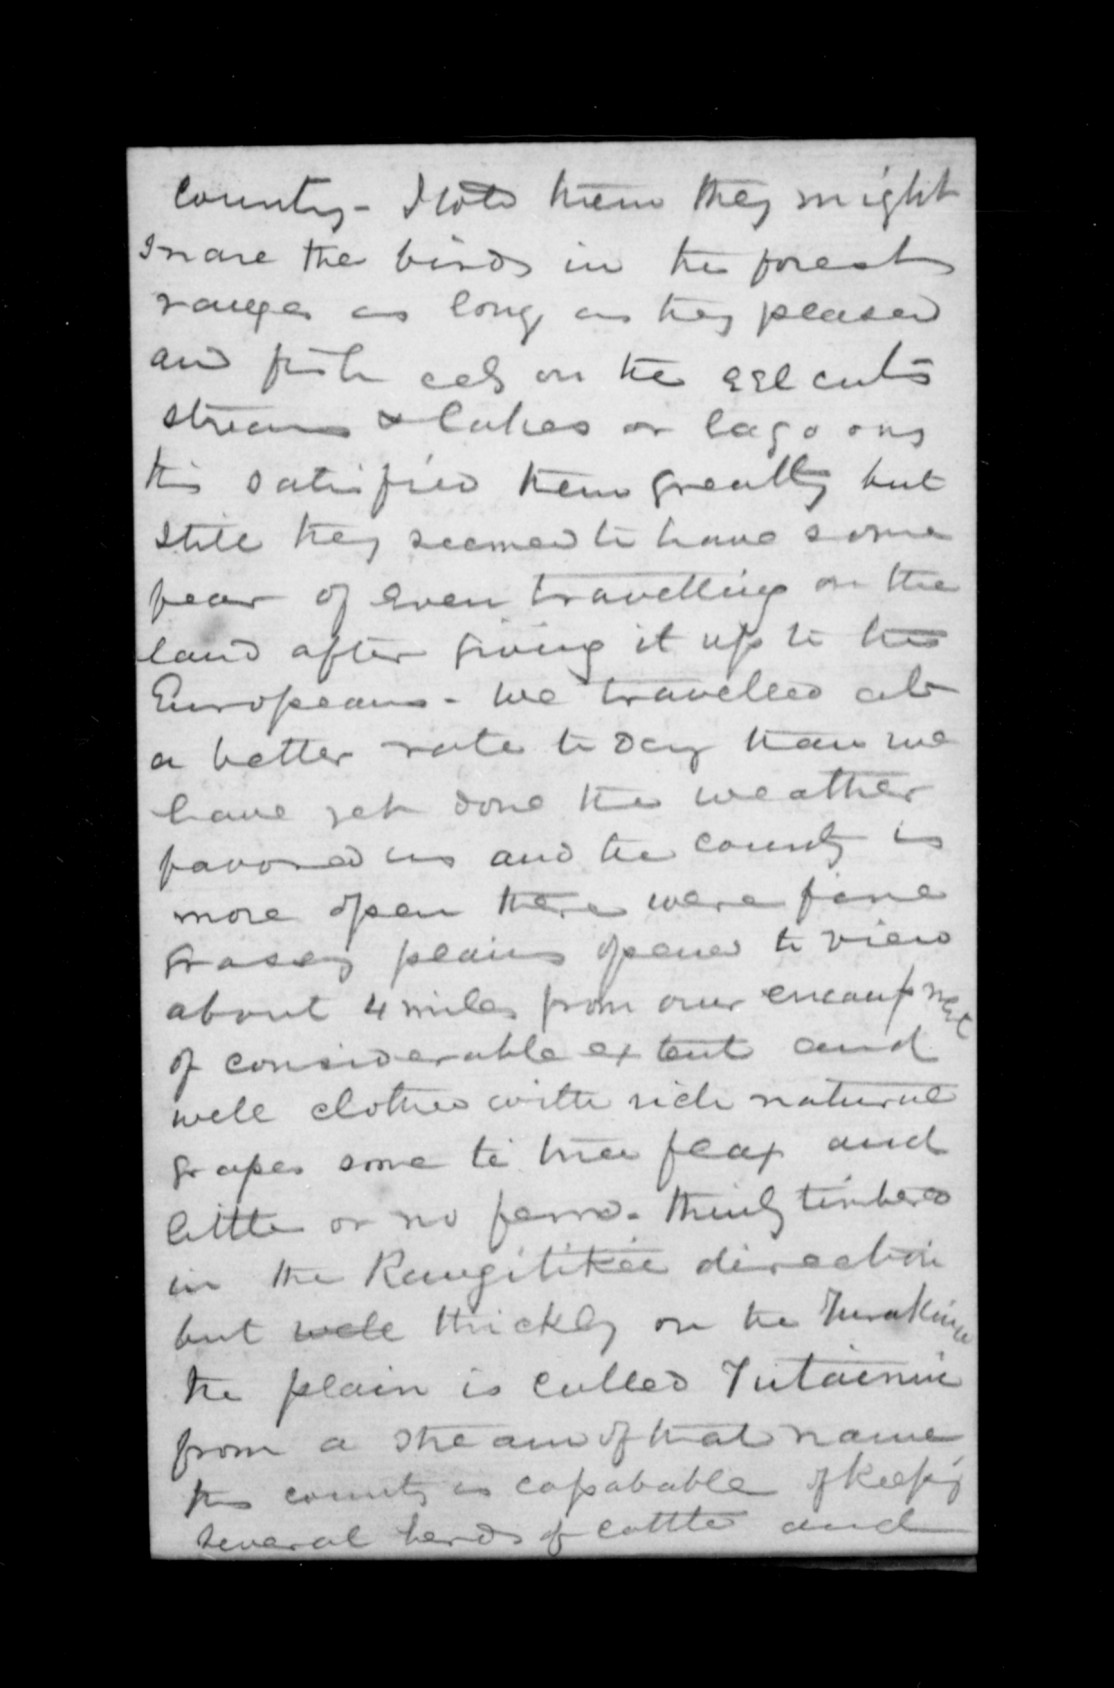 country - I told them they might
snare the birds in the forest
ranges as long as they pleased
and fish eels on the eel cuts
streams & lakes or lagoons
this satisfied them greatly but
still they seemed to have some
fear of even travelling on the
land after giving it up to the
Europeans - we travelled at
a better rate to day than we
have yet done the weather
favored us and the country is
more open there were fine
grassy plains opened to view
about 4 miles from our encampmet
of considerable extent and
well clothed with rich natural
grapes some ti tree flax and
little or no fern - thinly timbered
in the Rangitikei direction
but well thickly on the Turakina
the plain is called Tutaenui
from a stream of that name
this country is capabable of keepg
several herds of cattle and